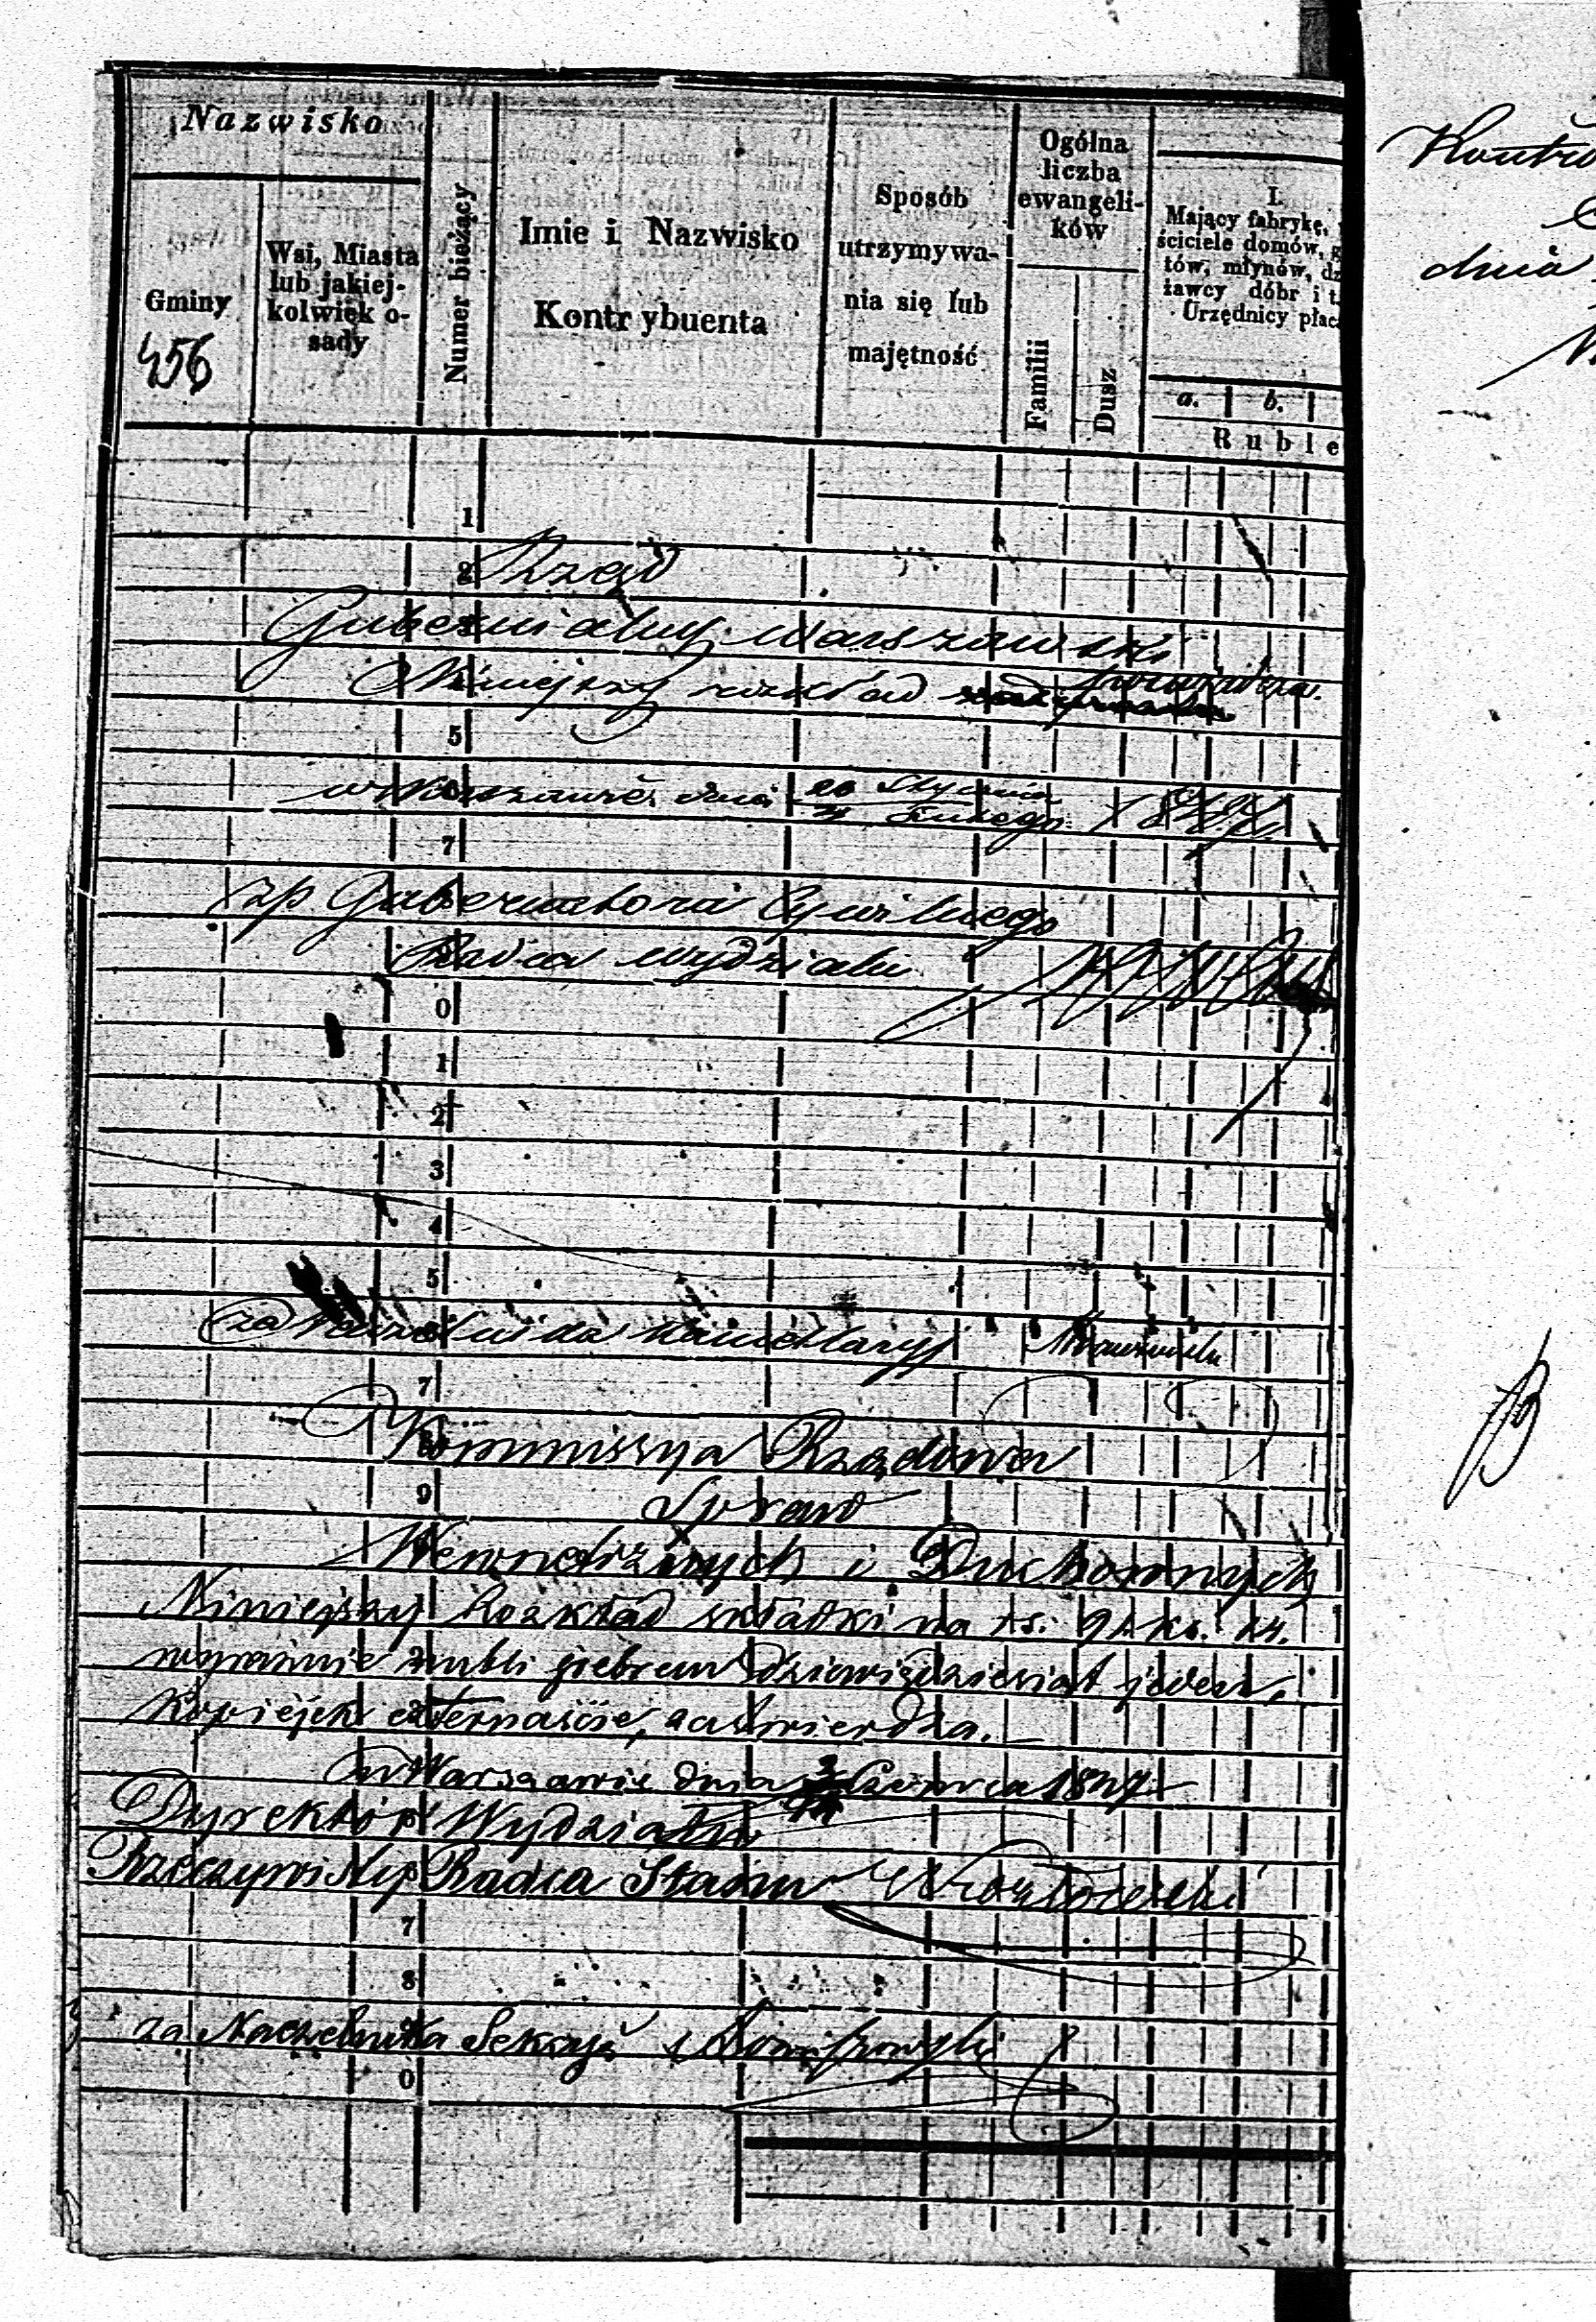 Nazwisko
Gminy
Wsi, Miasta
lub jakiej-
kolwiek o-
sady
Numer bieżący
Imie i Nazwisko
Kontrybuenta
Sposób
utrzymywa-
nia się lub
majętność
Ogólna
liczba
ewangeli-
ków
Familii
Dusz
I.
Mający fabrykę,
ściciele domów, g
tów, młynów, dz
żawcy dóbr i t.
Urzędnicy płac
a. b.
Ruble
456
1
2
Rząd
Gubernialny Warszawski
Niniejszy rozkład
potwierdza.
5
w Warszawie dnia 20 Stycznia
Lutego
7
zp Gubernatora Cywilnego
Radca Wydziału
0
1
2
3
4
5
za Naczelnika Kancellaryi
7
Kommissya Rządowa
9
Spraw
Wewnętrznych i Duchownych
Niniejszy Rozkład składki na rs. 91 ko. 14.
wyraźnie rubli srebrem dziewięćdziesiąt jeden,
kopiejek czternaście, zatwierdza.
w Warszawie dnia Czerwca 1847
Dyrektor Wydziału
Rzeczywisty Radca Stanu
7
8
za Naczelnika Sekcyi
0
dnia